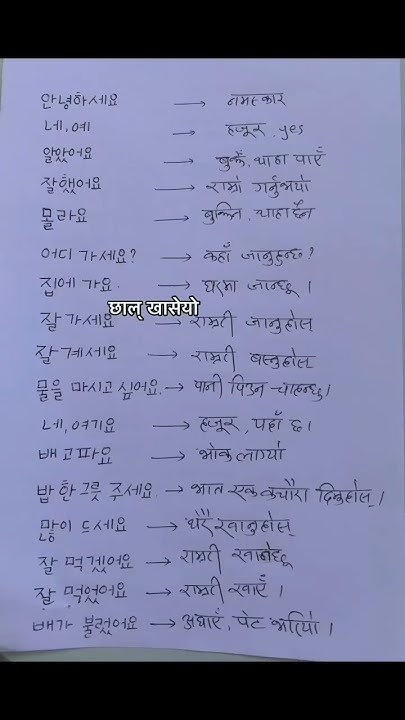 안녕하세요 → नमस्कार
네, 예 → हजूर, yes
알았어요 → बुझेँ, थाहा पाएँ
잘했어요 → राम्रो गर्नुभयो
몰라요 → बुझिन, थाहाछैन
어디 가세요? → कहाँ जानुहुन्छ?
집에 가요. → घरमा जान्छु ।
छाल् खासेयो
잘 가세요 → राम्ररी जानुहोस्
잘 계세요 → राम्ररी बस्नुहोस्
물을 마시고 싶어요. → पानी पिउन चाहन्छु।
네, 여기요 → हजूर, यहाँ छ।
배고파요 → भोक लाग्यो
밥 한 그릇 주세요. → भात एक कचौरा दिनुहोस्।
많이 드세요 → धेरै खानुहोस्
잘 먹겠어요 → राम्ररी खानेछु
잘 먹었어요 → राम्ररी खाएँ ।
배가 불렀어요 → अघाएँ, पेट भरियो ।